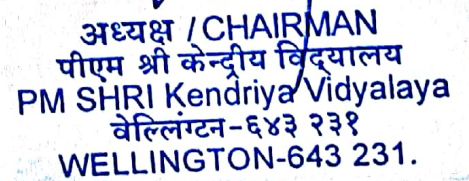 अध्यक्ष / CHAIRMAN
पीएम श्री केन्द्रीय विद्यालय
PM SHRI Kendriya Vidyalaya
वेल्लिंग्टन-६४३ २३१
WELLINGTON-643 231.